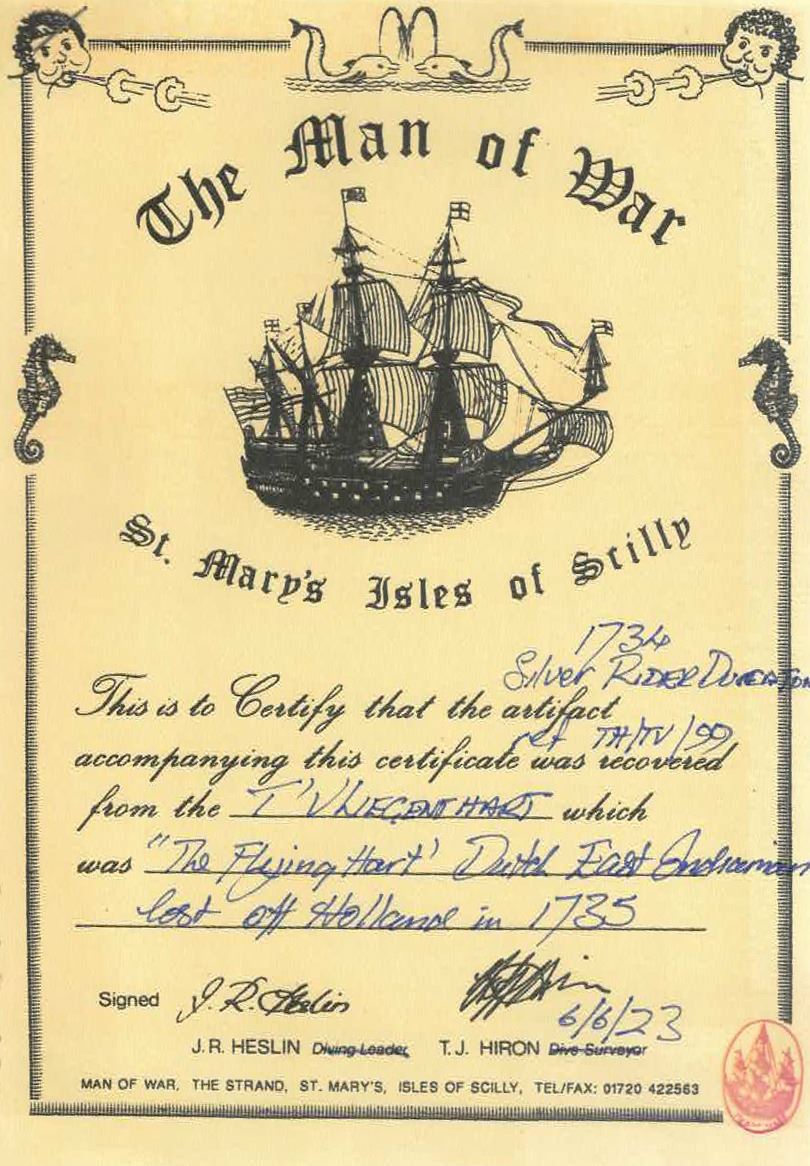 The Man of War
St. Mary's Isles of Scilly
1734
Silver RIDER DUCATON
This is to Certify that the artifact
ref TH/TV/99
accompanying this certificate was recovered
from the T'VLIEGENTHART which
was "The Flying Hart' Dutch East Indiaman
lost off Holland in 1735
Signed J. R. Heslin
6/6/23
J.R. HESLIN Diving Leader, T.J. HIRON Dive Surveyor
MAN OF WAR, THE STRAND, ST. MARY'S, ISLES OF SCILLY, TEL/FAX: 01720 422563